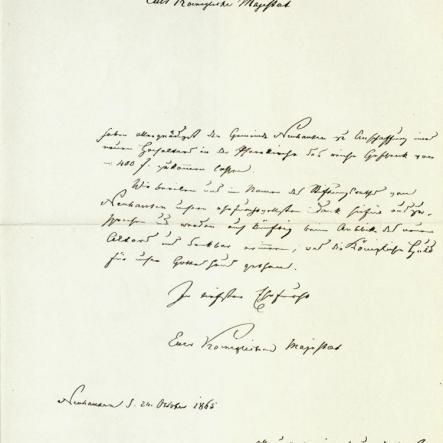 Eure Königliche Majestät
haben allergnädigst der Gemeinde Neuhausen zu Anschaffung eines
neuen Hochaltars in die Pfarrkirche das reiche Geschenk von
– 400 f. zukommen lassen.
Wir beeilen uns im Namen des Stiftungsraths von
Neuhausen unsern ehrfurchtsvollsten Dank hiefür auszu-
sprechen und werden auf beim Anblick des neuen
Altars uns dankbar erinnern, was die Königliche Huld
für unser Gotteshaus gethan.
In tiefster Ehrfurcht
Eurer Königlichen Majestät
Neuhausen d. 24. Oktober 1865